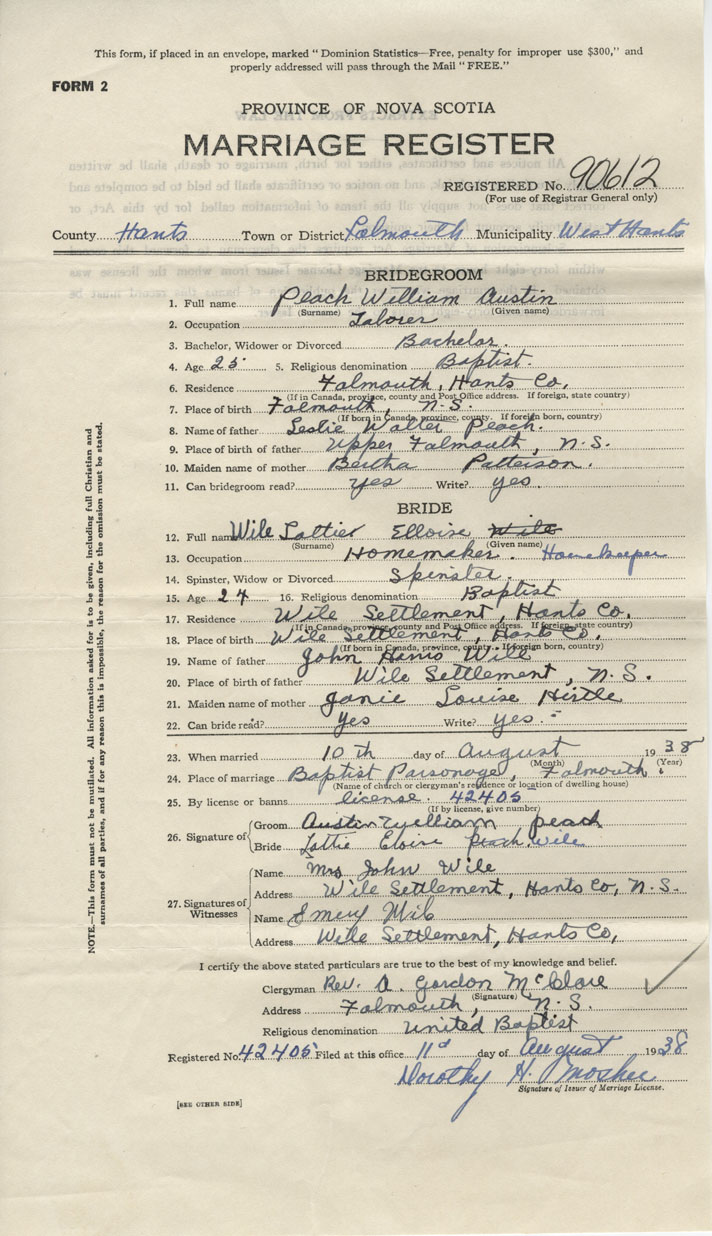 This form, if placed in an envelope, marked "Dominion Statistics—Free, penalty for improper use $300," and
properly addressed will pass through the Mail "FREE."
FORM 2
PROVINCE OF NOVA SCOTIA
MARRIAGE REGISTER
REGISTERED No. 90612
(For use of Registrar General only)
County Hants Town or District Falmouth Municipality West Hants
BRIDEGROOM
1. Full name Peach William Austin
(Surname) (Given name)
2. Occupation Laborer
3. Bachelor, Widower or Divorced Bachelor.
4. Age 25 5. Religious denomination Baptist.
6. Residence Falmouth, Hants Co.
(If in Canada, province, county and Post Office address. If foreign, state country)
7. Place of birth Falmouth, N.S.
(If born in Canada, province, county. If foreign born, country)
8. Name of father Leslie Walter Peach.
9. Place of birth of father Upper Falmouth, N.S.
10. Maiden name of mother Bertha Patterson.
11. Can bridegroom read? yes Write? yes.
BRIDE
12. Full name Wile Lottie Elloise Wile
(Surname) (Given name)
13. Occupation Homemaker. Housekeeper
14. Spinster, Widow or Divorced Spinster.
15. Age 24 16. Religious denomination Baptist
17. Residence Wile Settlement, Hants Co.
(If in Canada, province, county and Post Office address. If foreign, state country)
18. Place of birth Wile Settlement, Hants Co.
(If born in Canada, province, county. If foreign born, country)
19. Name of father John Wile
20. Place of birth of father Wile Settlement, N.S.
21. Maiden name of mother Janie Louise Hirtle
22. Can bride read? Yes Write? Yes.
23. When married 10th day of August 1938
(Month) (Year)
24. Place of marriage Baptist Parsonage, Falmouth
(Name of church or clergyman's residence or location of dwelling house)
25. By license or banns license. 42405
(If by license, give number)
26. Signature of Groom Austin William Peach
Bride Lottie Eloise Peach. Wile
27. Signatures of Witnesses
Name Mrs John Wile
Address Wile Settlement, Hants Co, N.S.
Name Emery Wile
Address Wile Settlement, Hants Co,
I certify the above stated particulars are true to the best of my knowledge and belief.
Clergyman Rev. A. Gordon McClare
(Signature)
Address Falmouth, N.S.
Religious denomination United Baptist
Registered No. 42405 Filed at this office 11th day of August 1938
Dorothy H. Mosher
Signature of Issuer of Marriage License.
[SEE OTHER SIDE]
NOTE.—This form must not be mutilated. All information asked for is to be given, including full Christian and
surnames of all parties, and if for any reason this is impossible, the reason for the omission must be stated.